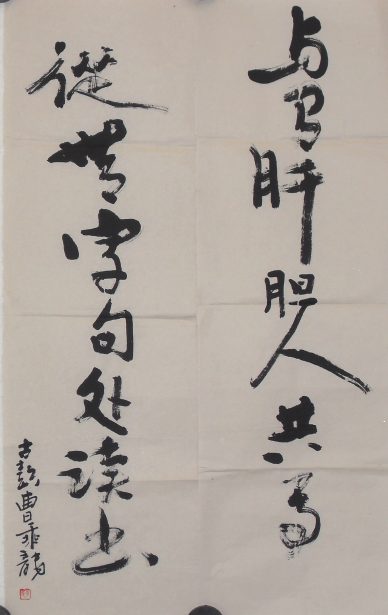 与有肝胆人共事
從無字句处读书
古 曹